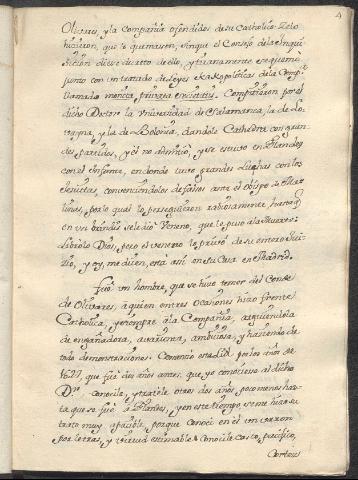 4
Olivares, y la Compañia ofendidos de su Catholico Zelo
hicieron, que lo quemasen, sinque el Consejo de la Inqui
sicion diese decreto de ello, y tiranamente se quemo
junto con un tratado de Leyes Kakopoliticas de la Comp.ª
llamado monita privata Societatis. Compitieron por el
dicho Doctor la Vniversidad de Salamanca, la de Lo
vayna, y la de Bolonia, dandole Cathedra con gran
des partidos, y él no admitio, y se estuvo en Flandes
con el Infante, en donde tuvo grandes Luchas con los
Jesuitas, convenciendolos de falsos ante el obispo de Ma
linas, por lo qual lo persiguieron rabiosamente, hasta q.
en un brindis se le dio Veneno, que lo puso a la Muerte:
Librolo Dios, pero el veneno lo privó de su entero Jui
zio, y oy, me dicen, está assi en su Casa en Madrid.
Fue un hombre, que se hizo temer del Conde
de Olivares, à quien en tres ocasiones hizo frente
Catholica, y siempre à la Compañia, arguiendola
de engañadora, avarienta, ambiciosa, y haziendo de
todo demonstraciones. Comenzó esta Lid por los años de
1627, que fue dos años antes, que yo conociese al dicho
D.r conocile, y tratéle otros dos años poco menos has
ta que se fue à Flandes, y en este tiempo, se me hizo su
trato muy apacible, porque conocí en él un varon
por letras, y virtud estimable: Conocile casto, pacifico,
Cortes